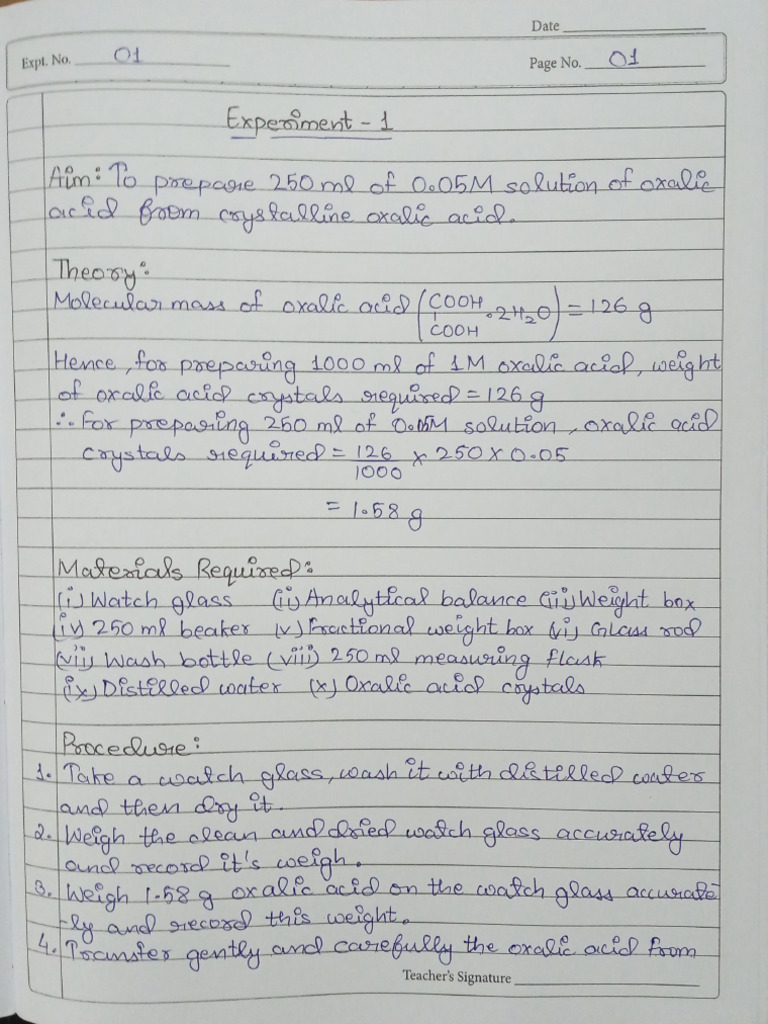 Date
Expt. No. 01
Page No. 01
Experiment - 1
Aim: To prepare 250 ml of 0.05M solution of oxalic
acid from crystalline oxalic acid.
Theory:
Molecular mass of oxalic acid (COOH COOH .2H₂O) = 126 g
Hence, for preparing 1000 ml of 1M oxalic acid, weight
of oxalic acid crystals required = 126 g
∴ For preparing 250 ml of 0.05M solution, oxalic acid
crystals required = 126/1000 × 250 × 0.05
= 1.58 g
Materials Required:
(i) Watch glass (ii) Analytical balance (iii) Weight box
(iv) 250 ml beaker (v) Fractional weight box (vi) Glass rod
(vii) Wash bottle (viii) 250 ml measuring flask
(ix) Distilled water (x) Oxalic acid crystals
Procedure:
1. Take a watch glass, wash it with distilled water
and then dry it.
2. Weigh the clean and dried watch glass accurately
and record it's weigh.
3. Weigh 1.58 g oxalic acid on the watch glass accurate
-ly and record this weight.
4. Transfer gently and carefully the oxalic acid from
Teacher's Signature